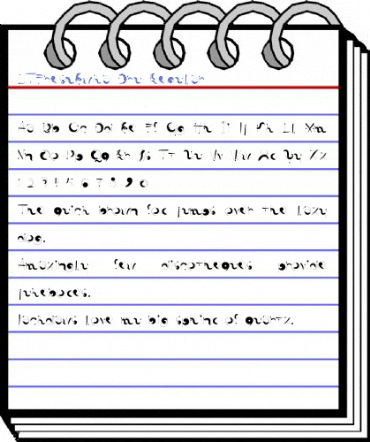 Aa Bb Cc Dd Ee Ff Gg Hh Ii Jj Kk Ll Mm
Nn Oo Pp Qq Rr Ss Tt Uu Vv Ww Xx Yy Zz
1 2 3 4 5 6 7 8 9 0
The quick brown fox jumps over the lazy
dog.
Amazingly few discotheques provide
jukeboxes.
Jackdaws love my big sphinx of quartz.